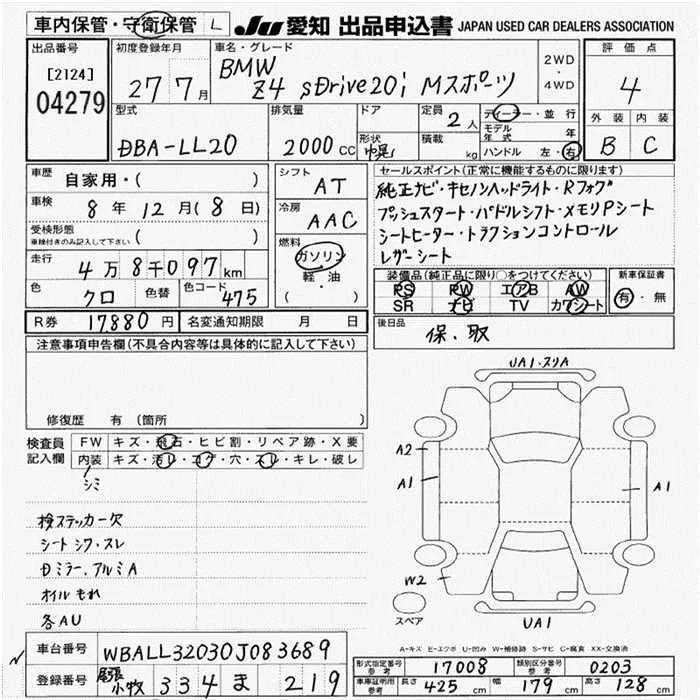 車内保管・守衛保管 L JU 愛知 出品申込書 JAPAN USED CAR DEALERS ASSOCIATION
出品番号 初度登録年月 車名・グレード 評価点
[2124] 04279 27 7月 BMW Z4 sDrive20i Mスポーツ 2WD・4WD 4
型式 排気量 ドア 定員 2人 ディーラー・並行 外装 内装
DBA-LL20 2000CC 形状 積載 kg モデル年式 年 B C
ハンドル 左・右
車歴 自家用・( ) シフト AT セールスポイント(正常に機能するものに限ります)
車検 8年12月(8日) 冷房 AAC 純正ナビ・キセノンヘッドライト・Rフォグ
受検形態 車検付きのみ記入して下さい ( ) プッシュスタート・パドルシフト・メモリPシート
走行 4万8千097km 燃料 ガソリン 軽・油 ( ) シートヒーター・トラクションコントロール
レザーシート
色 クロ 色替 色コード 475 装備品(純正品に限り○をつけてください) 新車保証書
PS PW エアB AW 有・無
SR ナビ TV カワシート
R券 17880円 名変通知期限 月 日 後日品
保.取
注意事項申告欄(不具合内容等は具体的に記入して下さい)
修復歴 有 (箇所 )
検査員記入欄 FW キズ・飛石・ヒビ割・リペア跡・X要
内装 キズ・汚レ・コゲ・穴・スレ・キレ・破レ
シミ
検ステッカー欠
シート シワ・スレ
Dミラー.アルミA
オイルもれ
各AU
UA1・スリA
A2
A1
A1
W2
スペア
UA1
A-キズ E-エクボ U-凹み W-補修跡 S-サビ C-腐食 XX-交換済
車台番号 WBALL32030J083689
登録番号 尾張小牧 334 ま 219
形式指定番号 参考 17008 類別区分番号 参考 0203
車庫証明用 参考 長さ 425cm 幅 179cm 高さ 128cm